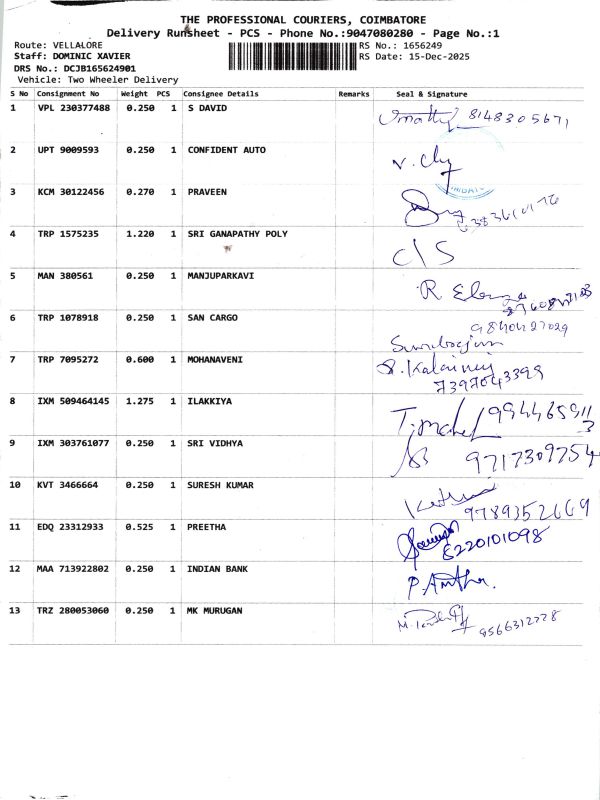 THE PROFESSIONAL COURIERS, COIMBATORE
Delivery Runsheet - PCS - Phone No.:9047080280 - Page No.:1
Route: VELLALORE RS No.: 1656249
Staff: DOMINIC XAVIER RS Date: 15-Dec-2025
DRS No.: DCJB165624901
Vehicle: Two Wheeler Delivery
S No Consignment No Weight PCS Consignee Details Remarks Seal & Signature
1 VPL 230377488 0.250 1 S DAVID 8148305671
2 UPT 9009593 0.250 1 CONFIDENT AUTO
3 KCM 30122456 0.270 1 PRAVEEN
4 TRP 1575235 1.220 1 SRI GANAPATHY POLY C/S
5 MAN 380561 0.250 1 MANJUPARKAVI
6 TRP 1078918 0.250 1 SAN CARGO
7 TRP 7095272 0.600 1 MOHANAVENI
7397043399
8 IXM 509464145 1.275 1 ILAKKIYA 9944659113
9 IXM 303761077 0.250 1 SRI VIDHYA 9717309754
10 KVT 3466664 0.250 1 SURESH KUMAR
9789352669
11 EDQ 23312933 0.525 1 PREETHA
8220101098
12 MAA 713922802 0.250 1 INDIAN BANK
13 TRZ 280053060 0.250 1 MK MURUGAN 9566312778